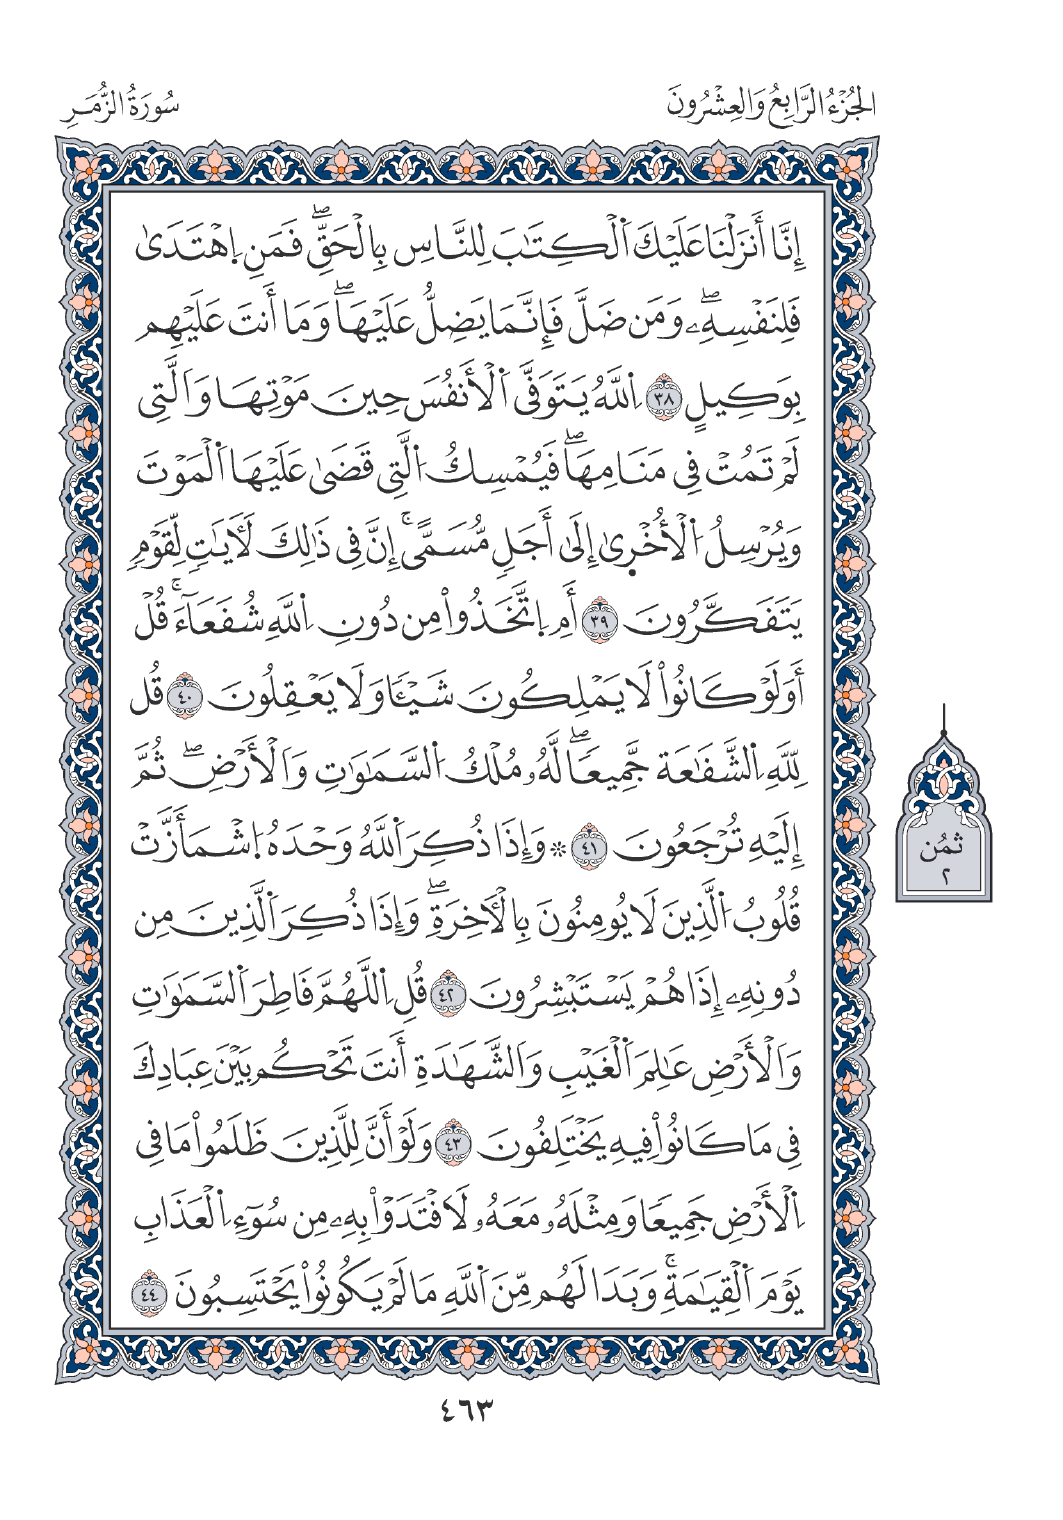 الجُزْءُ الرَّابِعُ وَالعِشْرُونَ
سُورَةُ الزُّمَرِ
إِنَّا أَنزَلْنَا عَلَيْكَ اَ۬لْكِتَٰبَ لِلنَّاسِ بِالْحَقِّۖ فَمَنِ اِ۪هْتَدَىٰ
فَلِنَفْسِهِۦۖ وَمَن ضَلَّ فَإِنَّمَا يَضِلُّ عَلَيْهَاۖ وَمَا أَنتَ عَلَيْهِم
بِوَكِيلٍ ٣٨ اِ۬للَّهُ يَتَوَفَّى اَ۬لْأَنفُسَ حِينَ مَوْتِهَا وَالَّتِي
لَمْ تَمُتْ فِي مَنَامِهَاۖ فَيُمْسِكُ اُ۬لَّتِي قَضَىٰ عَلَيْهَا اَ۬لْمَوْتَ
وَيُرْسِلُ اُ۬لْأُخْر۪ىٰ إِلَىٰ أَجَلٖ مُّسَمًّىۚ إِنَّ فِي ذَٰلِكَ لَأٓيَٰتٖ لِّقَوْمٖ
يَتَفَكَّرُونَ ٣٩ أَمِ اِ۪تَّخَذُواْ مِن دُونِ اِ۬للَّهِ شُفَعَآءَۚ قُلْ
أَوَلَوْ كَانُواْ لَا يَمْلِكُونَ شَيْـٔٗا وَلَا يَعْقِلُونَ ٤٠ قُل
لِّلَّهِ اِ۬لشَّفَٰعَة جَّمِيعٗاۖ لَّهُۥ مُلْكُ اُ۬لسَّمَٰوَٰتِ وَالْأَرْضِۖ ثُمَّ
إِلَيْهِ تُرْجَعُونَ ٤١ ۞ وَإِذَا ذُكِرَ اَ۬للَّهُ وَحْدَهُ اُ۪شْمَأَزَّتْ
قُلُوبُ اُ۬لَّذِينَ لَا يُومِنُونَ بِالْأٓخِرَةِۖ وَإِذَا ذُكِرَ اَ۬لَّذِينَ مِن
دُونِهِۦ إِذَا هُمْ يَسْتَبْشِرُونَ ٤٢ قُلِ اِ۬للَّهُمَّ فَاطِرَ اَ۬لسَّمَٰوَٰتِ
وَالْأَرْضِ عَٰلِمَ اَ۬لْغَيْبِ وَالشَّهَٰدَةِ أَنتَ تَحْكُم بَيْنَ عِبَادِكَ
فِي مَا كَانُواْ فِيهِ يَخْتَلِفُونَ ٤٣ وَلَوْ أَنَّ لِلَّذِينَ ظَلَمُواْ مَا فِي
اِ۬لْأَرْضِ جَمِيعٗا وَمِثْلَهُۥ مَعَهُۥ لَافْتَدَوْاْ بِهِۦ مِن سُوٓءِ اِ۬لْعَذَابِ
يَوْمَ اَ۬لْقِيَٰمَةِۚ وَبَدَا لَهُم مِّنَ اَ۬للَّهِ مَا لَمْ يَكُونُواْ يَحْتَسِبُونَ ٤٤
ثمُن
٢
٤٦٣